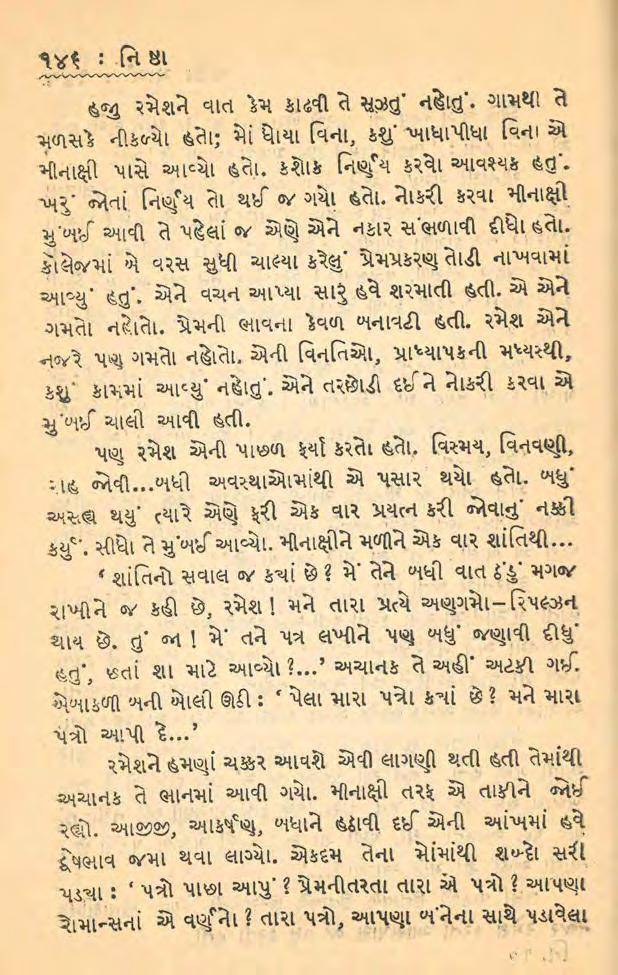 ૧૪૬ : નિ ષ્ઠા
હજી રમેશને વાત કેમ કાઢવી તે સૂઝતું નહોતું. ગામથી તે
મળસકે નીકળ્યો હતો; મેાં ધોયા વિના, કશું ખાધાપીધા વિના એ
મીનાક્ષી પાસે આવ્યો હતો. કશોક નિર્ણય કરવો આવશ્યક હતું.
ખરું જોતાં નિર્ણય તો થઈ જ ગયો હતો. નોકરી કરવા મીનાક્ષી
મુંબઈ આવી તે પહેલાં જ એણે એને નકાર સંભળાવી દીધો હતો.
કૉલેજમાં બે વરસ સુધી ચાલ્યા કરેલું પ્રેમપ્રકરણ તોડી નાખવામાં
આવ્યું હતું. એને વચન આપ્યા સારુ હવે શરમાતી હતી. એ એને
ગમતો નહોતો. પ્રેમની ભાવના કેવળ બનાવટી હતી. રમેશ એને
નજરે પણ ગમતો નહોતો. એની વિનતિઓ, પ્રાધ્યાપકની મધ્યસ્થી,
કશું કામમાં આવ્યું નહોતું. એને તરછોડી દઈને નોકરી કરવા એ
મુંબઈ ચાલી આવી હતી.
પણ રમેશ એની પાછળ ફર્યા કરતો હતો. વિસ્મય, વિનવણી,
રાહ જોવી...બધી અવસ્થાઓમાંથી એ પસાર થયો હતો. બધું
અસહ્ય થયું ત્યારે એણે ફરી એક વાર પ્રયત્ન કરી જોવાનું નક્કી
કર્યું. સીધો તે મુંબઈ આવ્યો. મીનાક્ષીને મળીને એક વાર શાંતિથી...
‘ શાંતિનો સવાલ જ ક્યાં છે ? મેં તેને બધી વાત ઠંડું મગજ
રાખીને જ કહી છે, રમેશ ! મને તારા પ્રત્યે અણગમો–રિપલ્ઝન
થાય છે. તું જા ! મેં તને પત્ર લખીને પણ બધું જણાવી દીધું
હતું, છતાં શા માટે આવ્યો ?...’ અચાનક તે અહીં અટકી ગઈ.
એબાકળી બની બોલી ઊઠી : ‘ પેલા મારા પત્રો ક્યાં છે ? મને મારા
પત્રો આપી દે...’
રમેશને હમણાં ચક્કર આવશે એવી લાગણી થતી હતી તેમાંથી
અચાનક તે ભાનમાં આવી ગયો. મીનાક્ષી તરફ એ તાકીને જોઈ
રહ્યો. આજીજી, આકર્ષણ, બધાને હઠાવી દઈ એની આંખમાં હવે
દ્વેષભાવ જમા થવા લાગ્યો. એકદમ તેના મેાંમાંથી શબ્દો સરી
પડ્યા : ‘ પત્રો પાછા આપું ? પ્રેમનીતરતા તારા એ પત્રો ? આપણા
રોમાન્સનાં એ વર્ણનો ? તારા પત્રો, આપણા બંનેના સાથે પડાવેલા